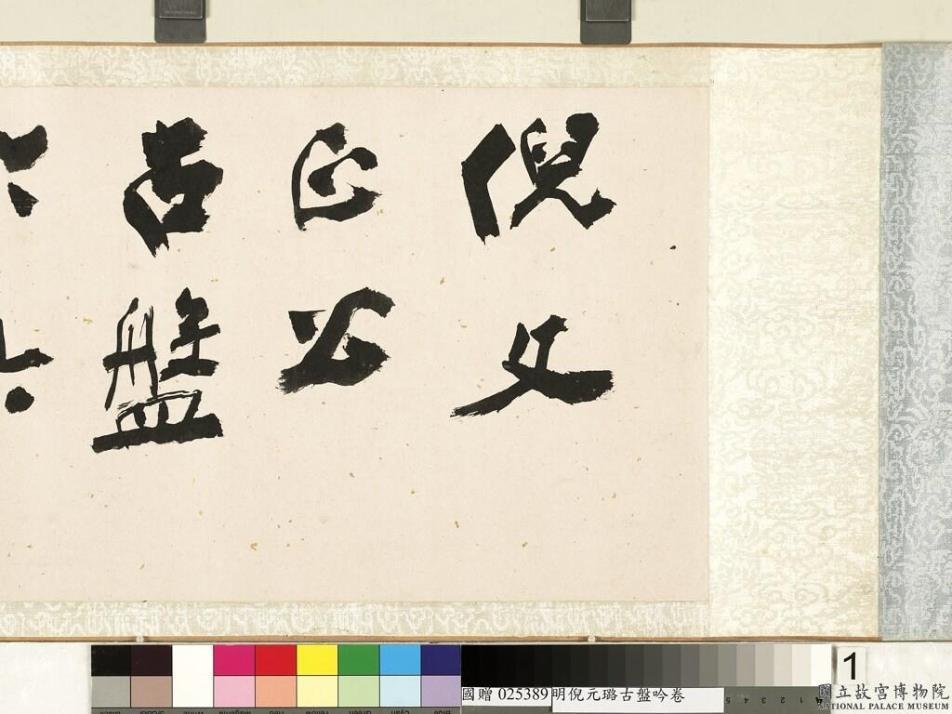 倪文
正公
古盤
國贈 025389明倪元璐古盤吟卷
1
國立故宮博物院
NATIONAL PALACE MUSEUM